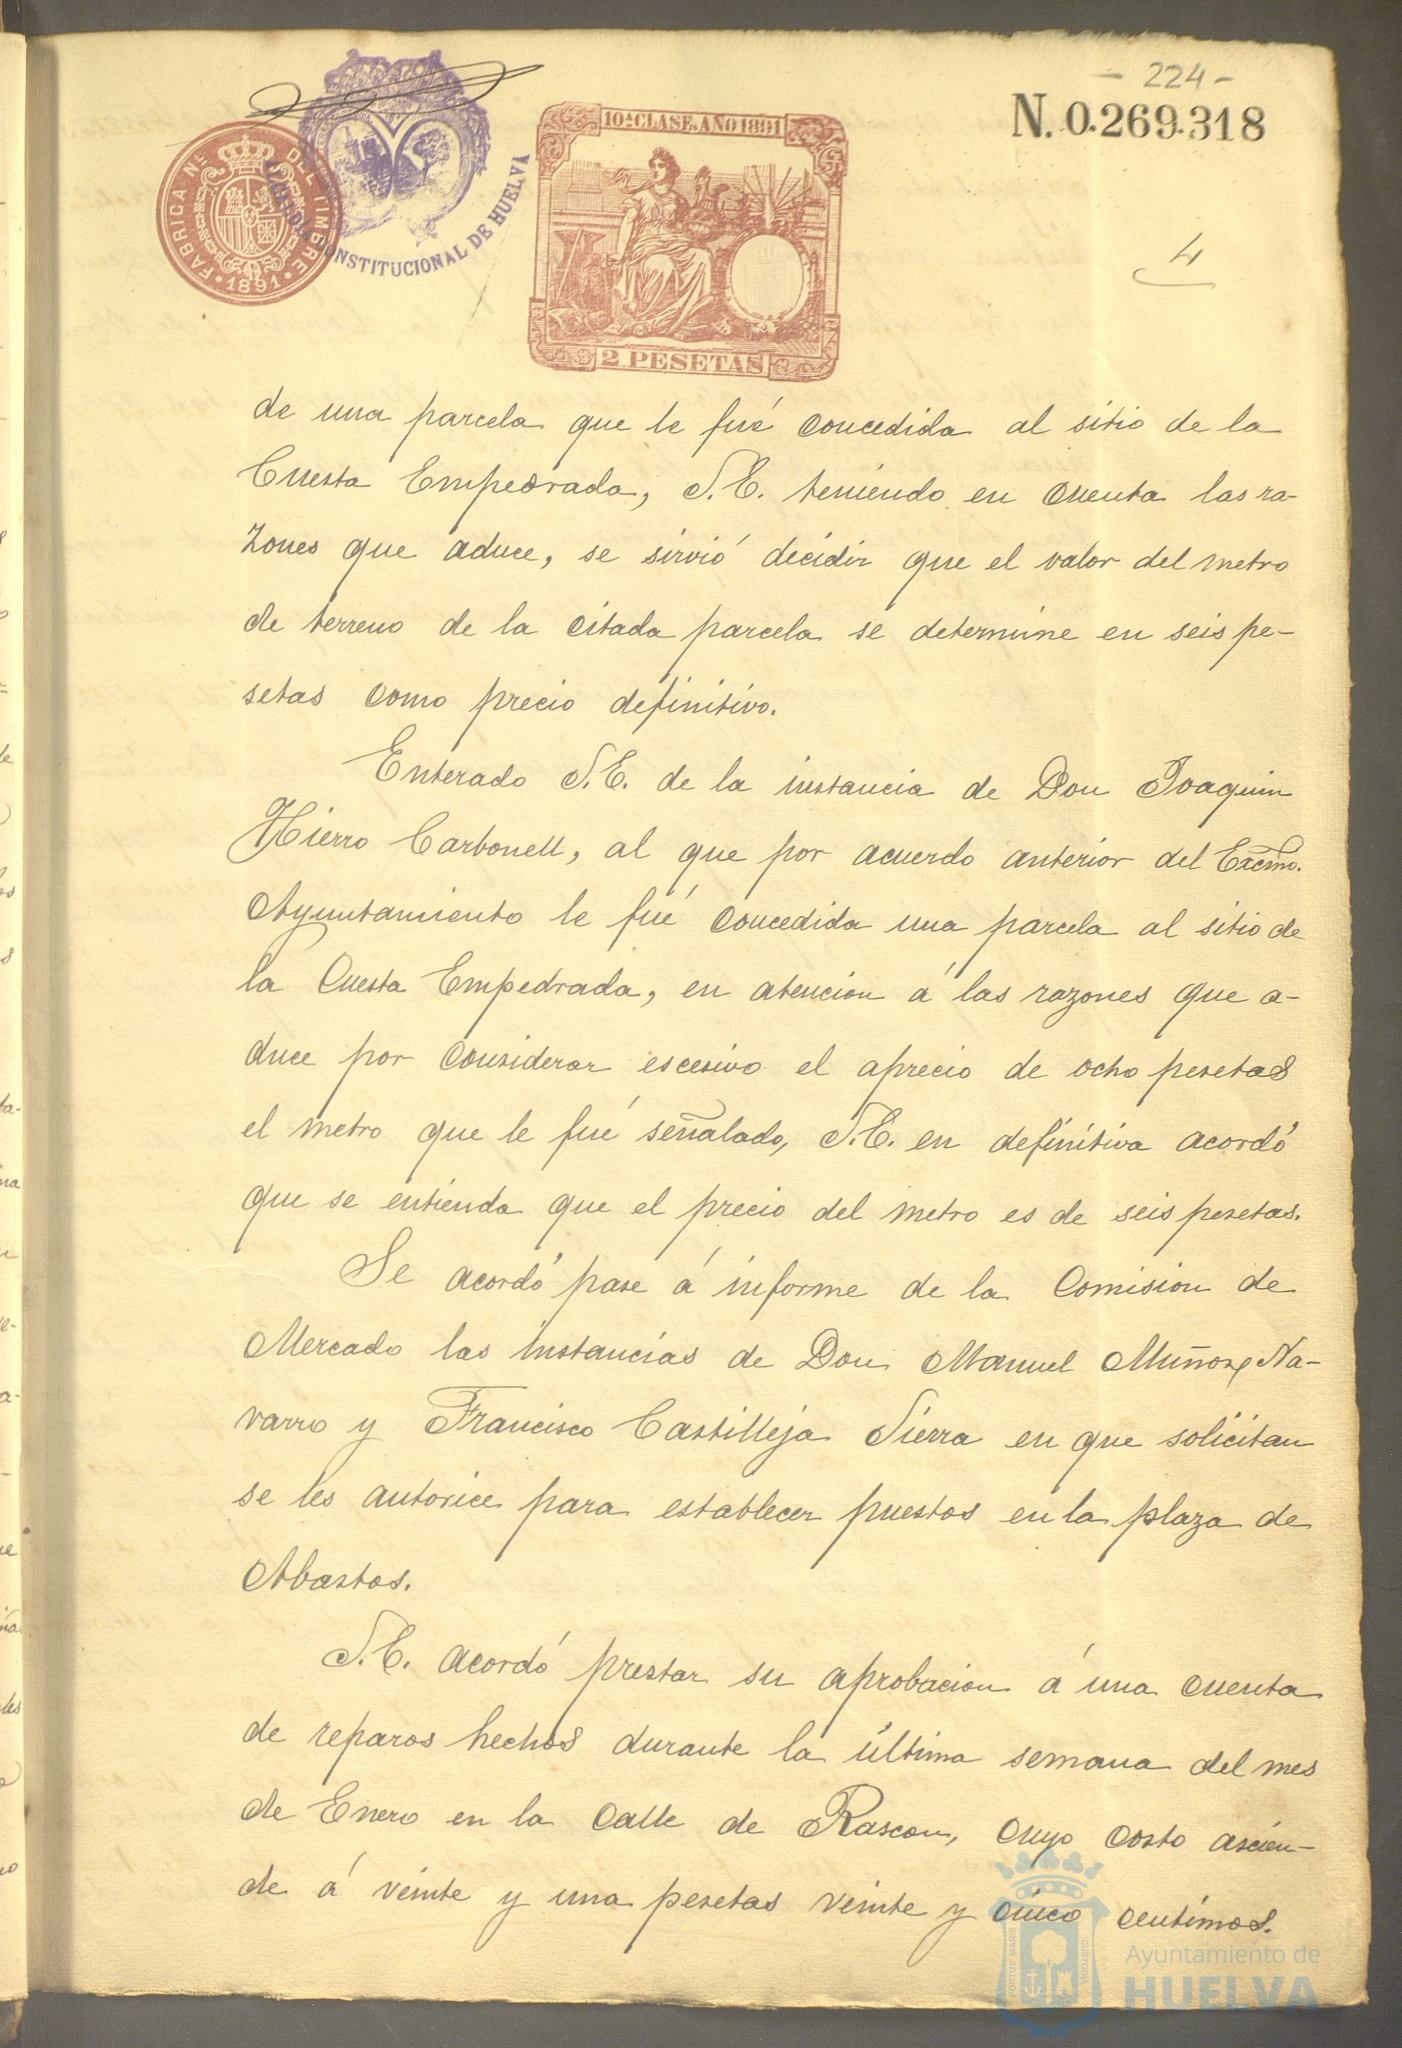 - 224 -
N. 0.269.318
10ª CLASE. AÑO 1891
FÁBRICA NL. DEL TIMBRE
· 1891 ·
CONSTITUCIONAL DE HUELVA
2 PESETAS
4
de una parcela que le fué concedida al sitio de la
Cuesta Empedrada, S.E. teniendo en cuenta las ra-
zones que aduce, se sirvió decidir que el valor del metro
de terreno de la citada parcela se determine en seis pe-
setas como precio definitivo.
Enterado S.E. de la instancia de Don Joaquin
Hierro Carbonell, al que por acuerdo anterior del Excmo.
Ayuntamiento le fué concedida una parcela al sitio de
la Cuesta Empedrada, en atencion á las razones que a-
duce por considerar escesivo el aprecio de ocho pesetas
el metro que le fué señalado, S.E. en definitiva acordó
que se entienda que el precio del metro es de seis pesetas.
Se acordó pase á informe de la Comision de
Mercado las instancias de Don Manuel Muñoz Na-
varro y Francisco Castilleja Sierra en que solicitan
se les autorice para establecer puestos en la plaza de
Abastos.
S.E. acordó prestar su aprobacion á una cuenta
de reparos hechos durante la última semana del mes
de Enero en la calle de Rascon, cuyo costo ascien-
de á veinte y una pesetas veinte y cinco centimos.
Ayuntamiento de
HUELVA